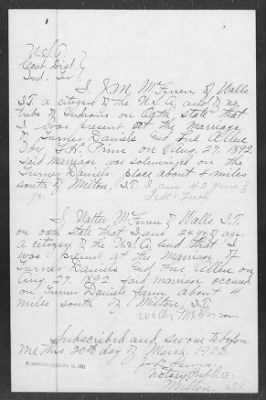 U.S.A.
Cent. Dist. of
Ind. Ter.
I J.M. McFerren of Walls
I.T. a citizen of the U.S.A. and of no
tribe of Indians on Oath state that
I was present at the marriage
of Turner Daniels and Eve Allen
by Prince on Aug 27 1892
Said marriage was solemnized on the
Turner Daniels place about 4 miles
south of Milton, I.T. I am 42 years of

I Walter McFerren of Walls I.T.
on oath state that I am 24 yr of age
a citizen of the U.S.A. and that I
was present at the marriage of
Turner Daniels and Eve Allen on
Aug. 27 1892 Said marriage occured
on Turner Daniels farm about 4
miles south of Milton, I.T.
Walter McFerren
Subscribed and sworn to before
me this 20th day of March 190
Notary Public
Milton I.T.